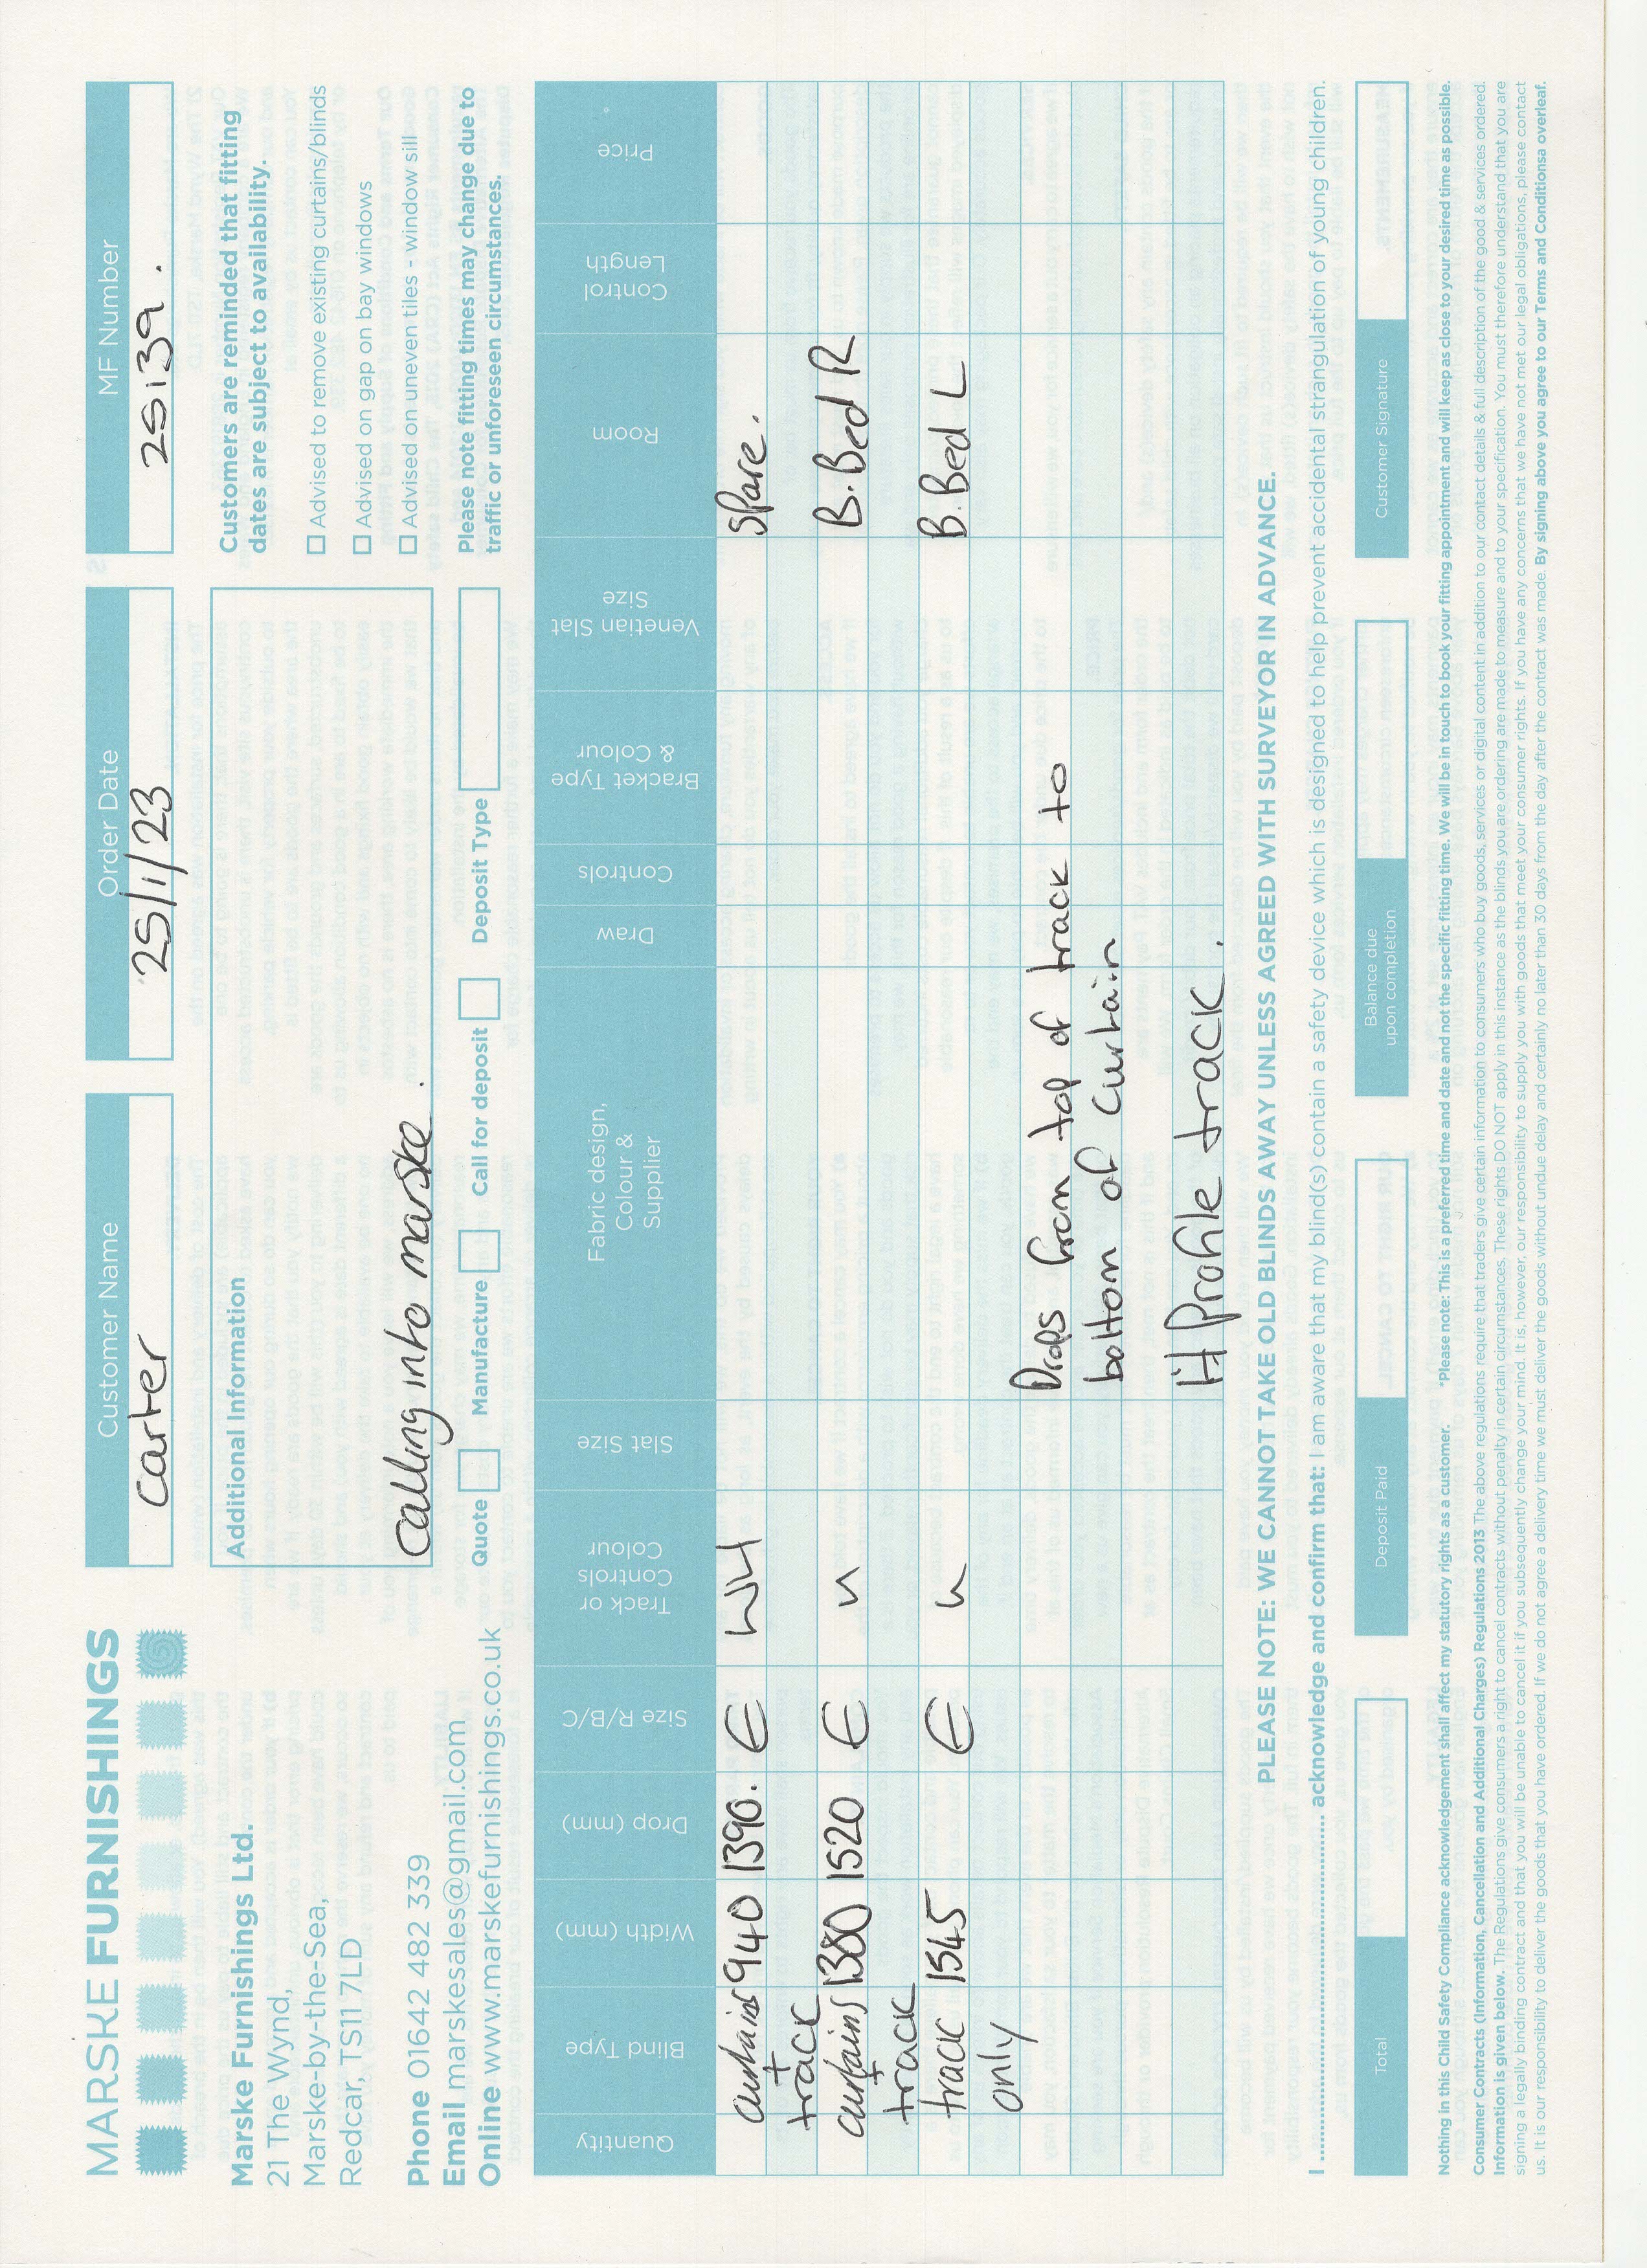 MARSKE FURNISHINGS
Marske Furnishings Ltd.
21 The Wynd,
Marske-by-the-Sea,
Redcar, TS11 7LD
Phone 01642 482 339
Email marskesales@gmail.com
Online www.marskefurnishings.co.uk
Customer Name
Carter
Order Date
25/1/23
MF Number
25139.
Additional Information
Calling into marske.
Customers are reminded that fitting
dates are subject to availability.
Advised to remove existing curtains/blinds
Advised on gap on bay windows
Advised on uneven tiles - window sill
Please note fitting times may change due to
traffic or unforeseen circumstances.
Quote Manufacture Call for deposit Deposit Type
Quantity Blind Type Width (mm) Drop (mm) Size R/B/C Track or Controls Colour Slat Size Fabric design, Colour & Supplier Draw Controls Bracket Type & Colour Venetian Slat Size Room Control Length Price
curtains 940 1390. E WH Spare.
+
track
curtains 1380 1520 E " B.Bed R
+
track
track 1545 E " B.Bed L
only
Drops from top of track to
bottom of curtain
Profile track.
PLEASE NOTE: WE CANNOT TAKE OLD BLINDS AWAY UNLESS AGREED WITH SURVEYOR IN ADVANCE.
I ........ acknowledge and confirm that: I am aware that my blind(s) contain a safety device which is designed to help prevent accidental strangulation of young children.
Total Deposit Paid Balance due upon completion Customer Signature
Nothing in this Child Safety Compliance acknowledgement shall affect my statutory rights as a customer. *Please note: This is a preferred time and date and not the specific fitting time. We will be in touch to book your fitting appointment and will keep as close to your desired time as possible.
Consumer Contracts (Information, Cancellation and Additional Charges) Regulations 2013 The above regulations require that traders give certain information to consumers who buy goods, services or digital content in addition to our contact details & full description of the good & services ordered.
Information is given below. The Regulations give consumers a right to cancel contracts without penalty in certain circumstances. These rights DO NOT apply in this instance as the blinds you are ordering are made to measure and to your specification. You must therefore understand that you are
signing a legally binding contract and that you will be unable to cancel it if you subsequently change your mind. It is, however, our responsibility to supply you with goods that meet your consumer rights. If you have any concerns that we have not met our legal obligations, please contact
us. It is our responsibility to deliver the goods that you have ordered. If we do not agree a delivery time we must deliver the goods without undue delay and certainly no later than 30 days from the day after the contract was made. By signing above you agree to our Terms and Conditionsa overleaf.